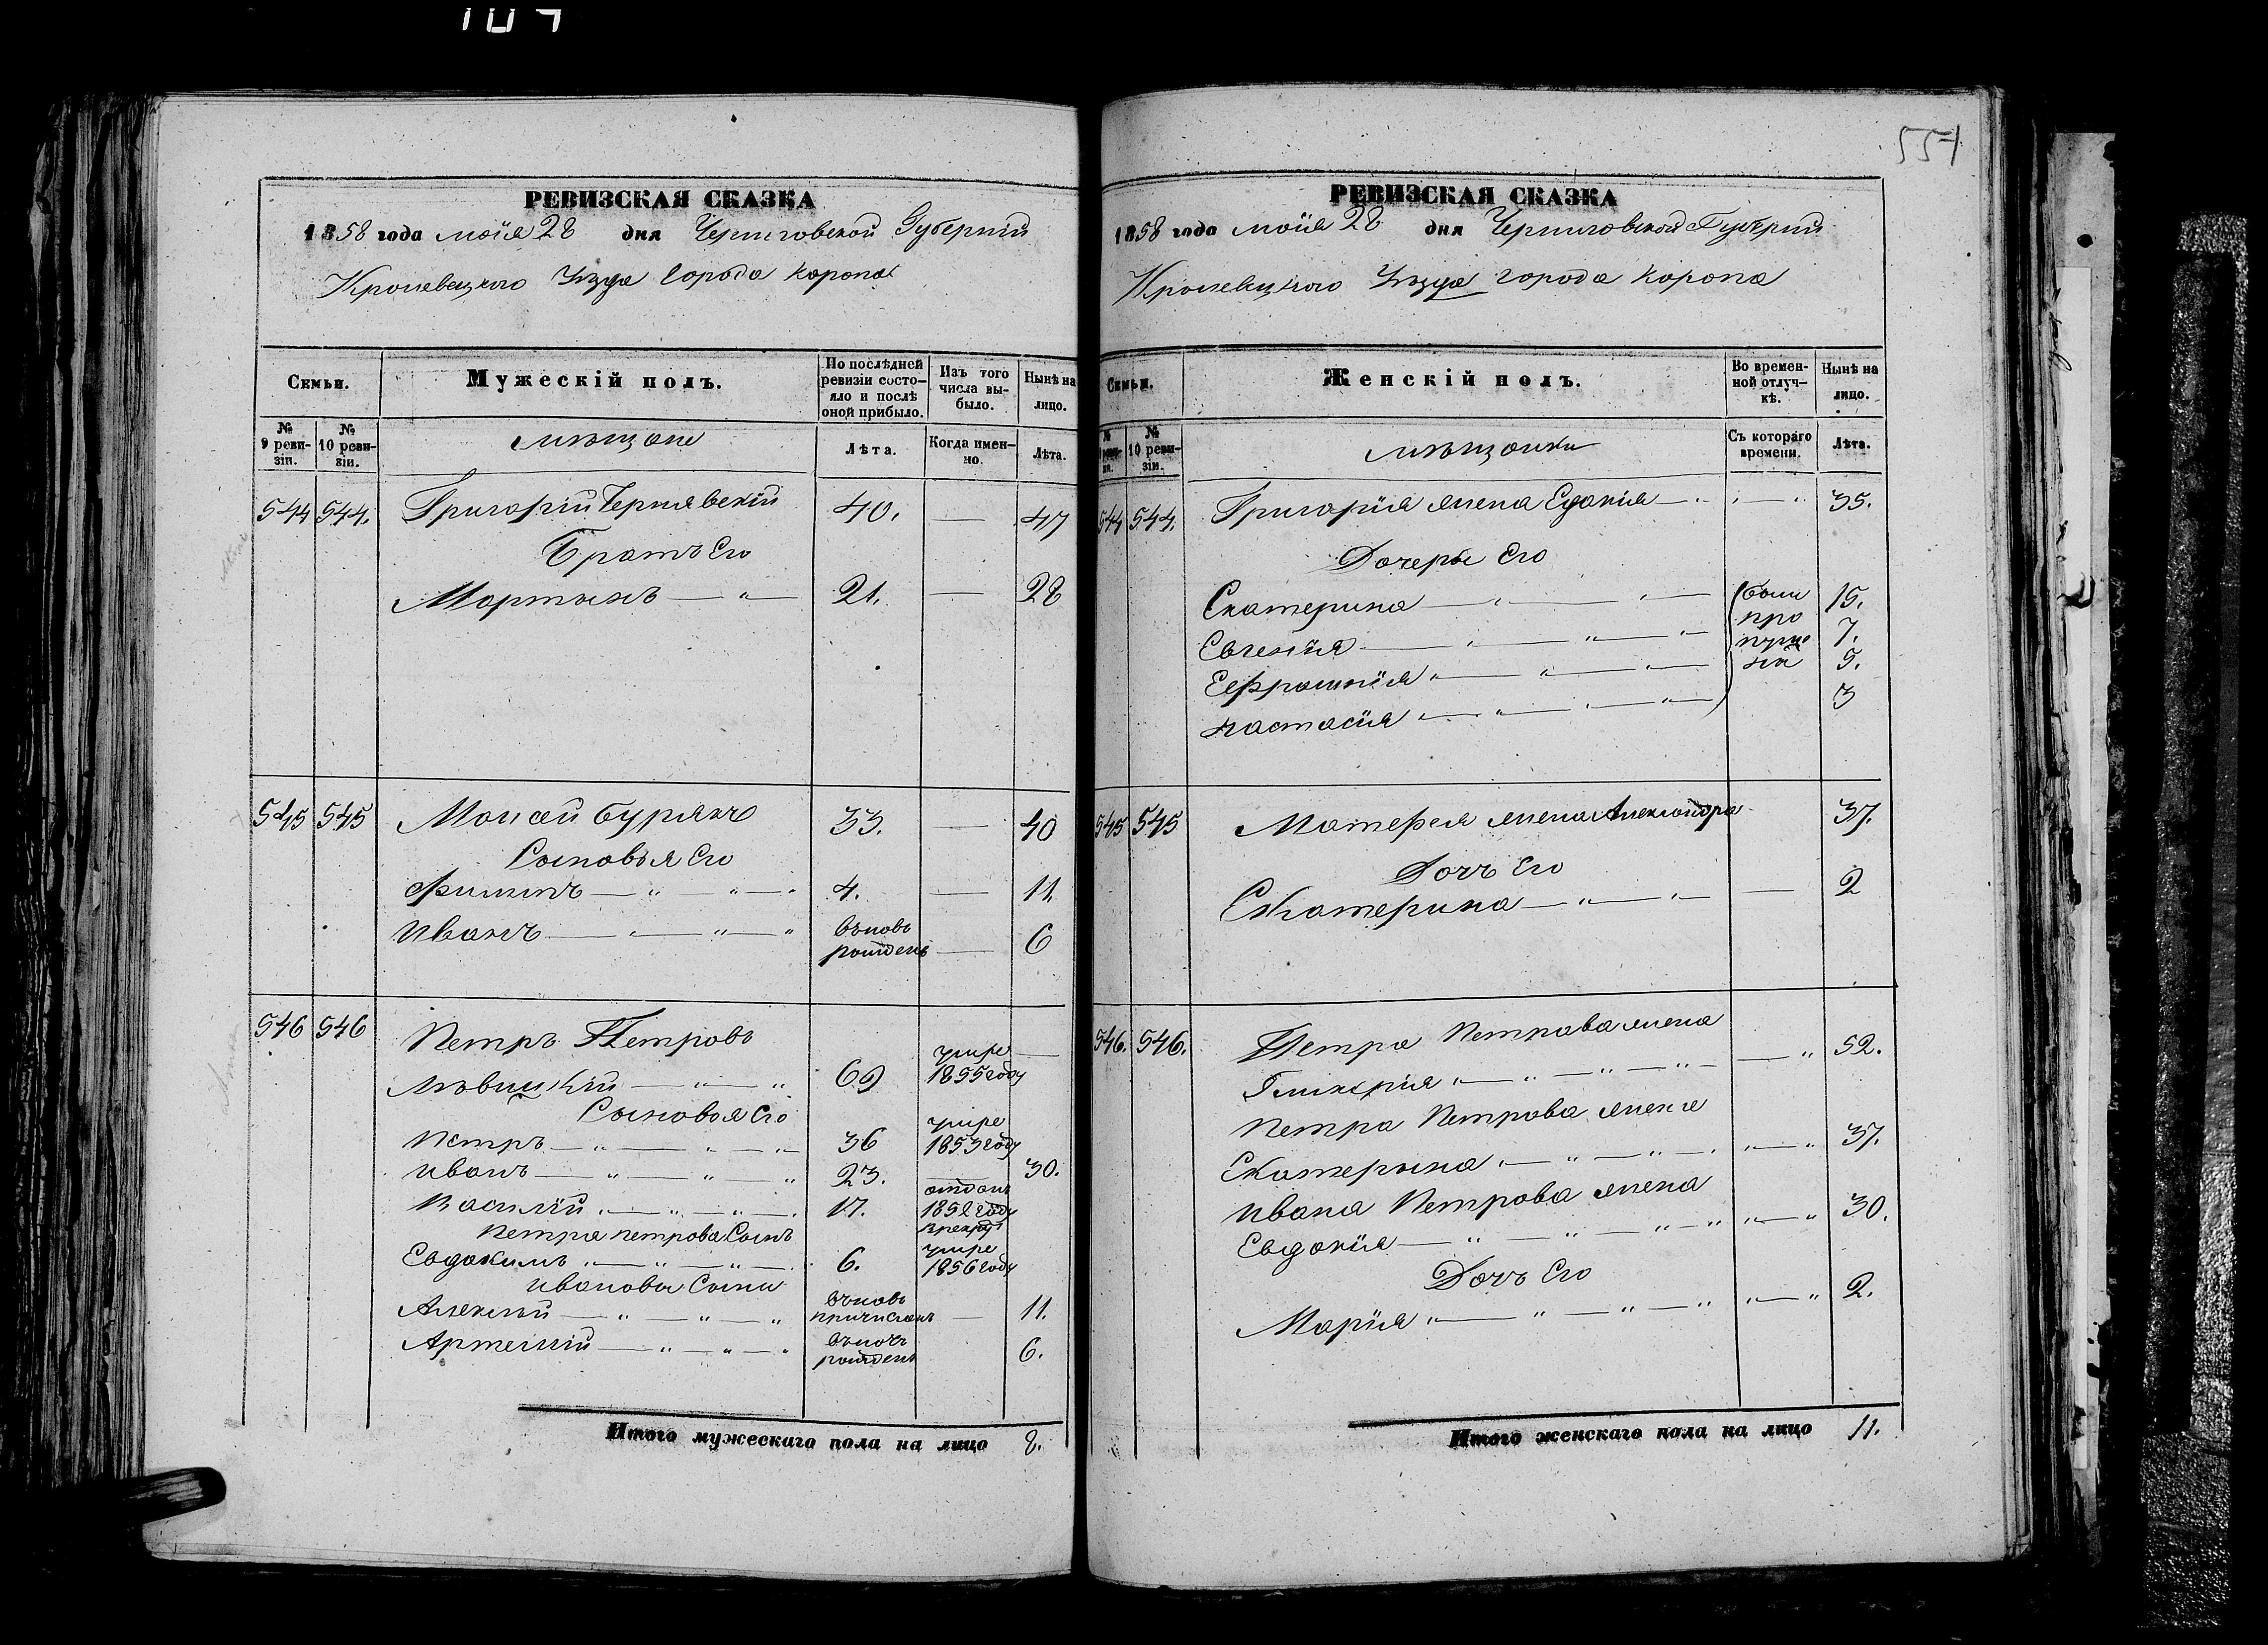 107
РЕВИЗСКАЯ СКАЗКА
1858 года мая 28 дня Черниговской Губерніи
Кролевецкого Уезда Города Коропа
Семьи.
Мужескій полъ.
По послѣдней ревизіи состояло и послѣ оной прибыло.
Изъ того числа выбыло.
Нынѣ на лицо.
№ 9 ревизіи.
№ 10 ревизіи.
мѣщане
Лѣта.
Когда именно.
Лѣта.
544 544. Григорій Чернявскій 40. — 47
Братъ Его
Мартынъ — " — 21. — 28
545 545 Моисей Бурякъ 33. — 40
Сыновья Его
Филипъ — " " — " 4. — 11.
Иванъ — " — " — " вновь рожденъ — 6
546 546 Петръ Петровъ
— " — " 69 умре 1855 году —
Сыновья Его
Петръ — " — " — " 36 умре 1853 году
Иванъ — " — " — " 23. — 30.
Василій " — " — " — 17. отданъ 1852 году
Петра Петрова Сынъ
Евдокимъ " — " — " — 6. умре 1856 году
Ивановы Сыны
Алексѣй — " — " — " вновь причисленъ — 11.
Артемій — " — " — " вновь рожденъ 6.
Итого мужескаго пола на лицо 8.
554
РЕВИЗСКАЯ СКАЗКА
1858 года мая 28 дня Черниговской Губерніи
Кролевецкого Уезда города Коропа
Семьи.
Женскій полъ.
Во временной отлучкѣ.
Нынѣ на лицо.
№ 10 ревизіи.
мѣщанки
Съ котораго времени.
Лѣта.
544 544. Григорія жена Едокія — " " — " 35.
Дочеры Его
Екатерина — " — " — были 15.
Евгенія — " — " — " — про 7.
Ефросинія " — " — " — 5.
Настасія " — " — " — " — 3
545 545 жена Александра 37.
Дочъ Его
Екатерина — " — " — — 2
546. 546. Петра Петрова жена — " 52.
Гликерія " — " — " — " —
Петра Петрова жена
Екатерына " — " — " — " " — " 37.
Ивана Петрова жена
Евдокія — " — " — " — " " — " 30.
Дочъ Его
Марія " — " — " — " " — " 2.
Итого женскаго пола на лицо 11.